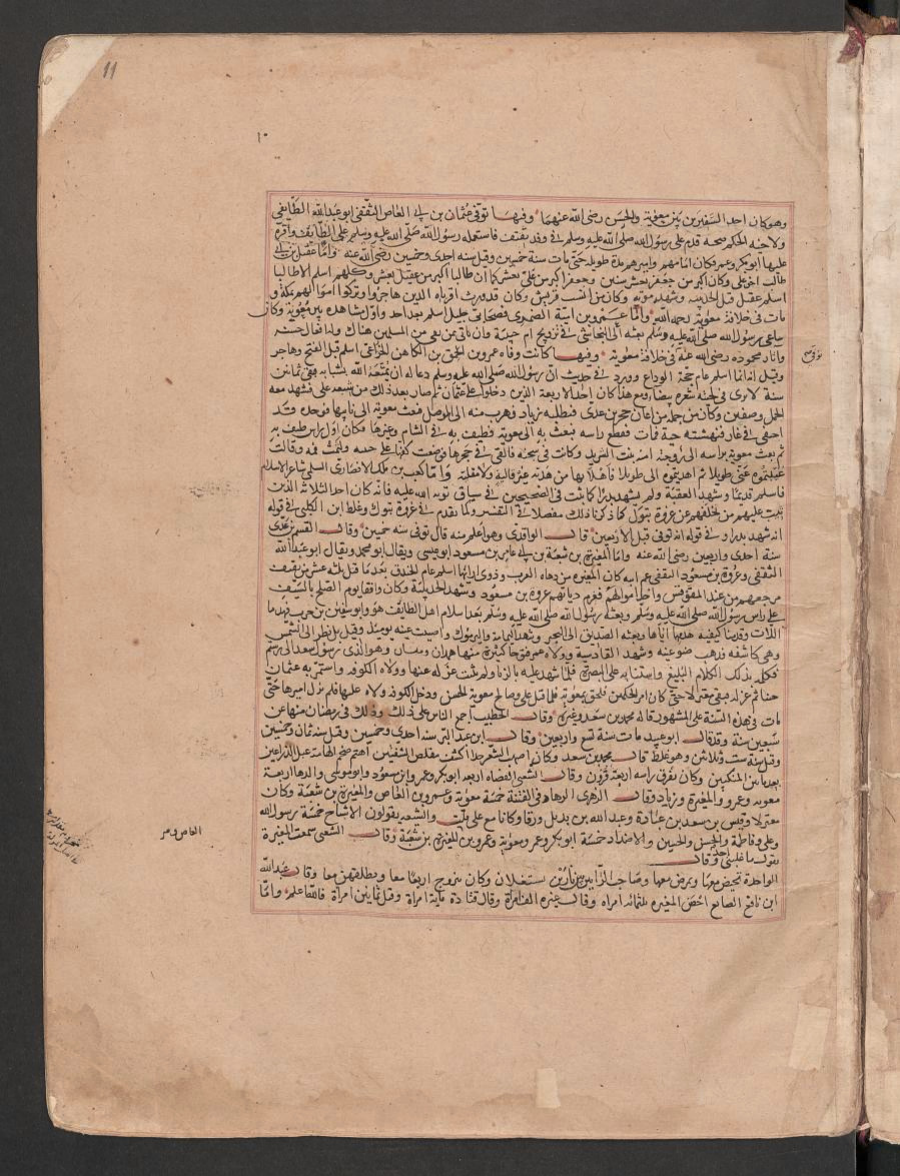 11
١٠
وهو كان احد السفيرين بين معوية والحسن رضي الله عنهما وفيها توفي عثمان بن ابي العاص الثقفي ابو عبد الله الطائفي
ولاخيه الحكم صحبة قدم على رسول الله صلى الله عليه وسلم في وفد ثقيف فاستعمله رسول الله صلى الله عليه وسلم على الطايف واقره
عليها ابو بكر وعمر فكان امامهم واميرهم مدة طويلة حتى مات سنة خمسين وقيل سنه احدى وخمسين رضي الله عنه واما عقيل بن ابي
طالب اخو علي وكان اكبر من جعفر بعشر سنين وجعفر اكبر من علي بعشر كما ان طالبا اكبر من عقيل بعشر وكلهم اسلم الا طالبا
اسلم عقيل قبل الحديبية وشهد موته وكان من انسب قريش وكان قد ورث اقرباه الذين هاجروا وتركوا اموالهم بمكة و
مات في خلافة معوية رحمه الله واما عمرو بن امية الضمري فصحابي جليل اسلم بعد احد واول مشاهده بير معونة وكان
ساعي رسول الله صلى الله عليه وسلم بعثه الى النجاشي في تزويج ام حبيبة وان ياتي بمن بقي من المسلمين هناك وله افعال حسنه
واثار محموده رضي الله عنه في خلافة معوية وفيها كانت وفاة عمرو بن الحمق بن الكاهن الخزاعي اسلم قبل الفتح وهاجر
وقيل انه انما اسلم عام حجة الوداع وورد في حديث ان رسول الله صلى الله عليه وسلم دعا له ان يمتعه الله بشبابه فبقي ثمانين
سنة لا يرى في لحيته شعرة بيضاء ومع هذا كان احد الاربعة الذين دخلوا على عثمان ثم صار بعد ذلك من شيعة علي فشهد معه
الجمل وصفين وكان من جملة من اعان حجر بن عدي فتطلبه زياد فهرب منه الى الموصل فبعث معوية الى نايبها فوجده وقد
اختفى في غار فنهشته حية فمات فقطع راسه فبعث به الى معوية فطيف به في الشام وغيرها فكان اول راس طيف به
ثم بعث معوية براسه الى زوجته امنة بنت الشريد وكانت في سجنه فالقي في حجرها فوضعت كفها على جبينه ولثمت فمه وقالت
غيبتموه عني طويلا ثم اهديتموه الي قتيلا فاهلا بها من هدية غير قالية ولا مقلية واما كعب بن ملك الانصاري السلمي شاعر الاسلام
فاسلم قديما وشهد العقبة ولم يشهد بدرا كما ثبت في الصحيحين في سياق توبة الله عليه فانه كان احد الثلاثة الذين
تيب عليهم من تخلفهم عن غزوة تبوك كما ذكرنا ذلك مفصلا في التفسير وكما تقدم في غزوة تبوك وغلط ابن الكلبي في قوله
انه شهد بدرا وفي قوله انه توفي قبل الاربعين قال الواقدي وهو اعلم منه قال توفي سنه خمسين وقال القسم بن عدي
سنة احدى واربعين رضي الله عنه واما المغيرة بن شعبة بن ابي عامر بن مسعود ابو عيسى ويقال ابو محمد ويقال ابو عبد الله
الثقفي وعروة بن مسعود الثقفي عم ابيه كان المغيره من دهاة العرب وذوي ارائها اسلم عام الخندق بعد ما قتل ثلثة عشر من ثقيف
مرجعهم من عند المقوقس واخذ اموالهم فغرم دياتهم عروة بن مسعود وشهد الحديبية وكان واقفا يوم الصلح بالسيف
على راس رسول الله صلى الله عليه وسلم وبعثه رسول الله صلى الله عليه وسلم بعد اسلام اهل الطايف هو وابو سفين بن حرب فهدما
اللات وقدمنا كيفية هدمهما اياها وبعثه الصديق الى البحرين وشهد اليمامة واليرموك واصيبت عينه يومئذ وقيل بل نظر الى الشمس
وهي كاسفه فذهب ضوء عينه وشهد القادسية وولاه عمر فتوحا كثيرة منها همدان وميسان وهو الذي رسول سعد الى رستم
فكلمه بذلك الكلام البليغ واستنابه على البصرة فلما شهد عليه بالزنا ولم يثبت عزله عنها وولاه الكوفه واستمر به عثمان
حينا ثم عزله فبقي معتزلا حتى كان امر الحكمين فلحق بمعوية فلما قتل علي وصالح معوية الحسن ودخل الكوفة ولاه عليها فلم يزل اميرها حتى
مات في هذه السنة على المشهور قاله محمد بن سعد وغيره وقال الخطيب اجمع الناس على ذلك وذلك في رمضان منها عن
سبعين سنة وقد قال ابو عبيد مات سنة تسع واربعين وقال ابن عبد البر سنه احدى وخمسين وقيل سنه ثمان وخمسين
وقيل سنة ست وثلاثين وهو غلط قال محمد بن سعد وكان اصهب الشعر جدا اكشف مقلص الشفتين اهتم ضخم الهامة عبل الذراعين
بعيد ما بين المنكبين وكان يفرق راسه اربعة قرون وقال الشعبي القضاة اربعة ابو بكر وعمر وابن مسعود وابو موسى والدهاة اربعة
معوية وعمرو والمغيرة وزياد وقال الزهري الدهاة في الفتنة خمسة معوية وعمرو بن العاص والمغيرة بن شعبة وكان
معتزلا وقيس بن سعد بن عبادة وعبد الله بن بديل بن ورقا وكانا مع علي قلت والشيعه يقولون الاشباح خمسة رسول الله
وعلي وفاطمة والحسن والحسين والاضداد خمسة ابو بكر وعمر ومعوية وعمرو بن والمغيرة بن شعبة وقال الشعبي سمعت المغيرة
يقول ما غلبني احد وقال
الواحدة تحيض معها ويمرض معها وصاحب المراتين بين نارين يشتعلان وكان يتزوج اربعا معا ويطلقهن معا وقال عبد الله
ابن نافع الصايغ احصن المغيره ثلثمائة امراه وقال غيره الف امرأة وقال قتادة ماية امراة وقيل ثمانين امرأة فالله اعلم واما
العاص ومر